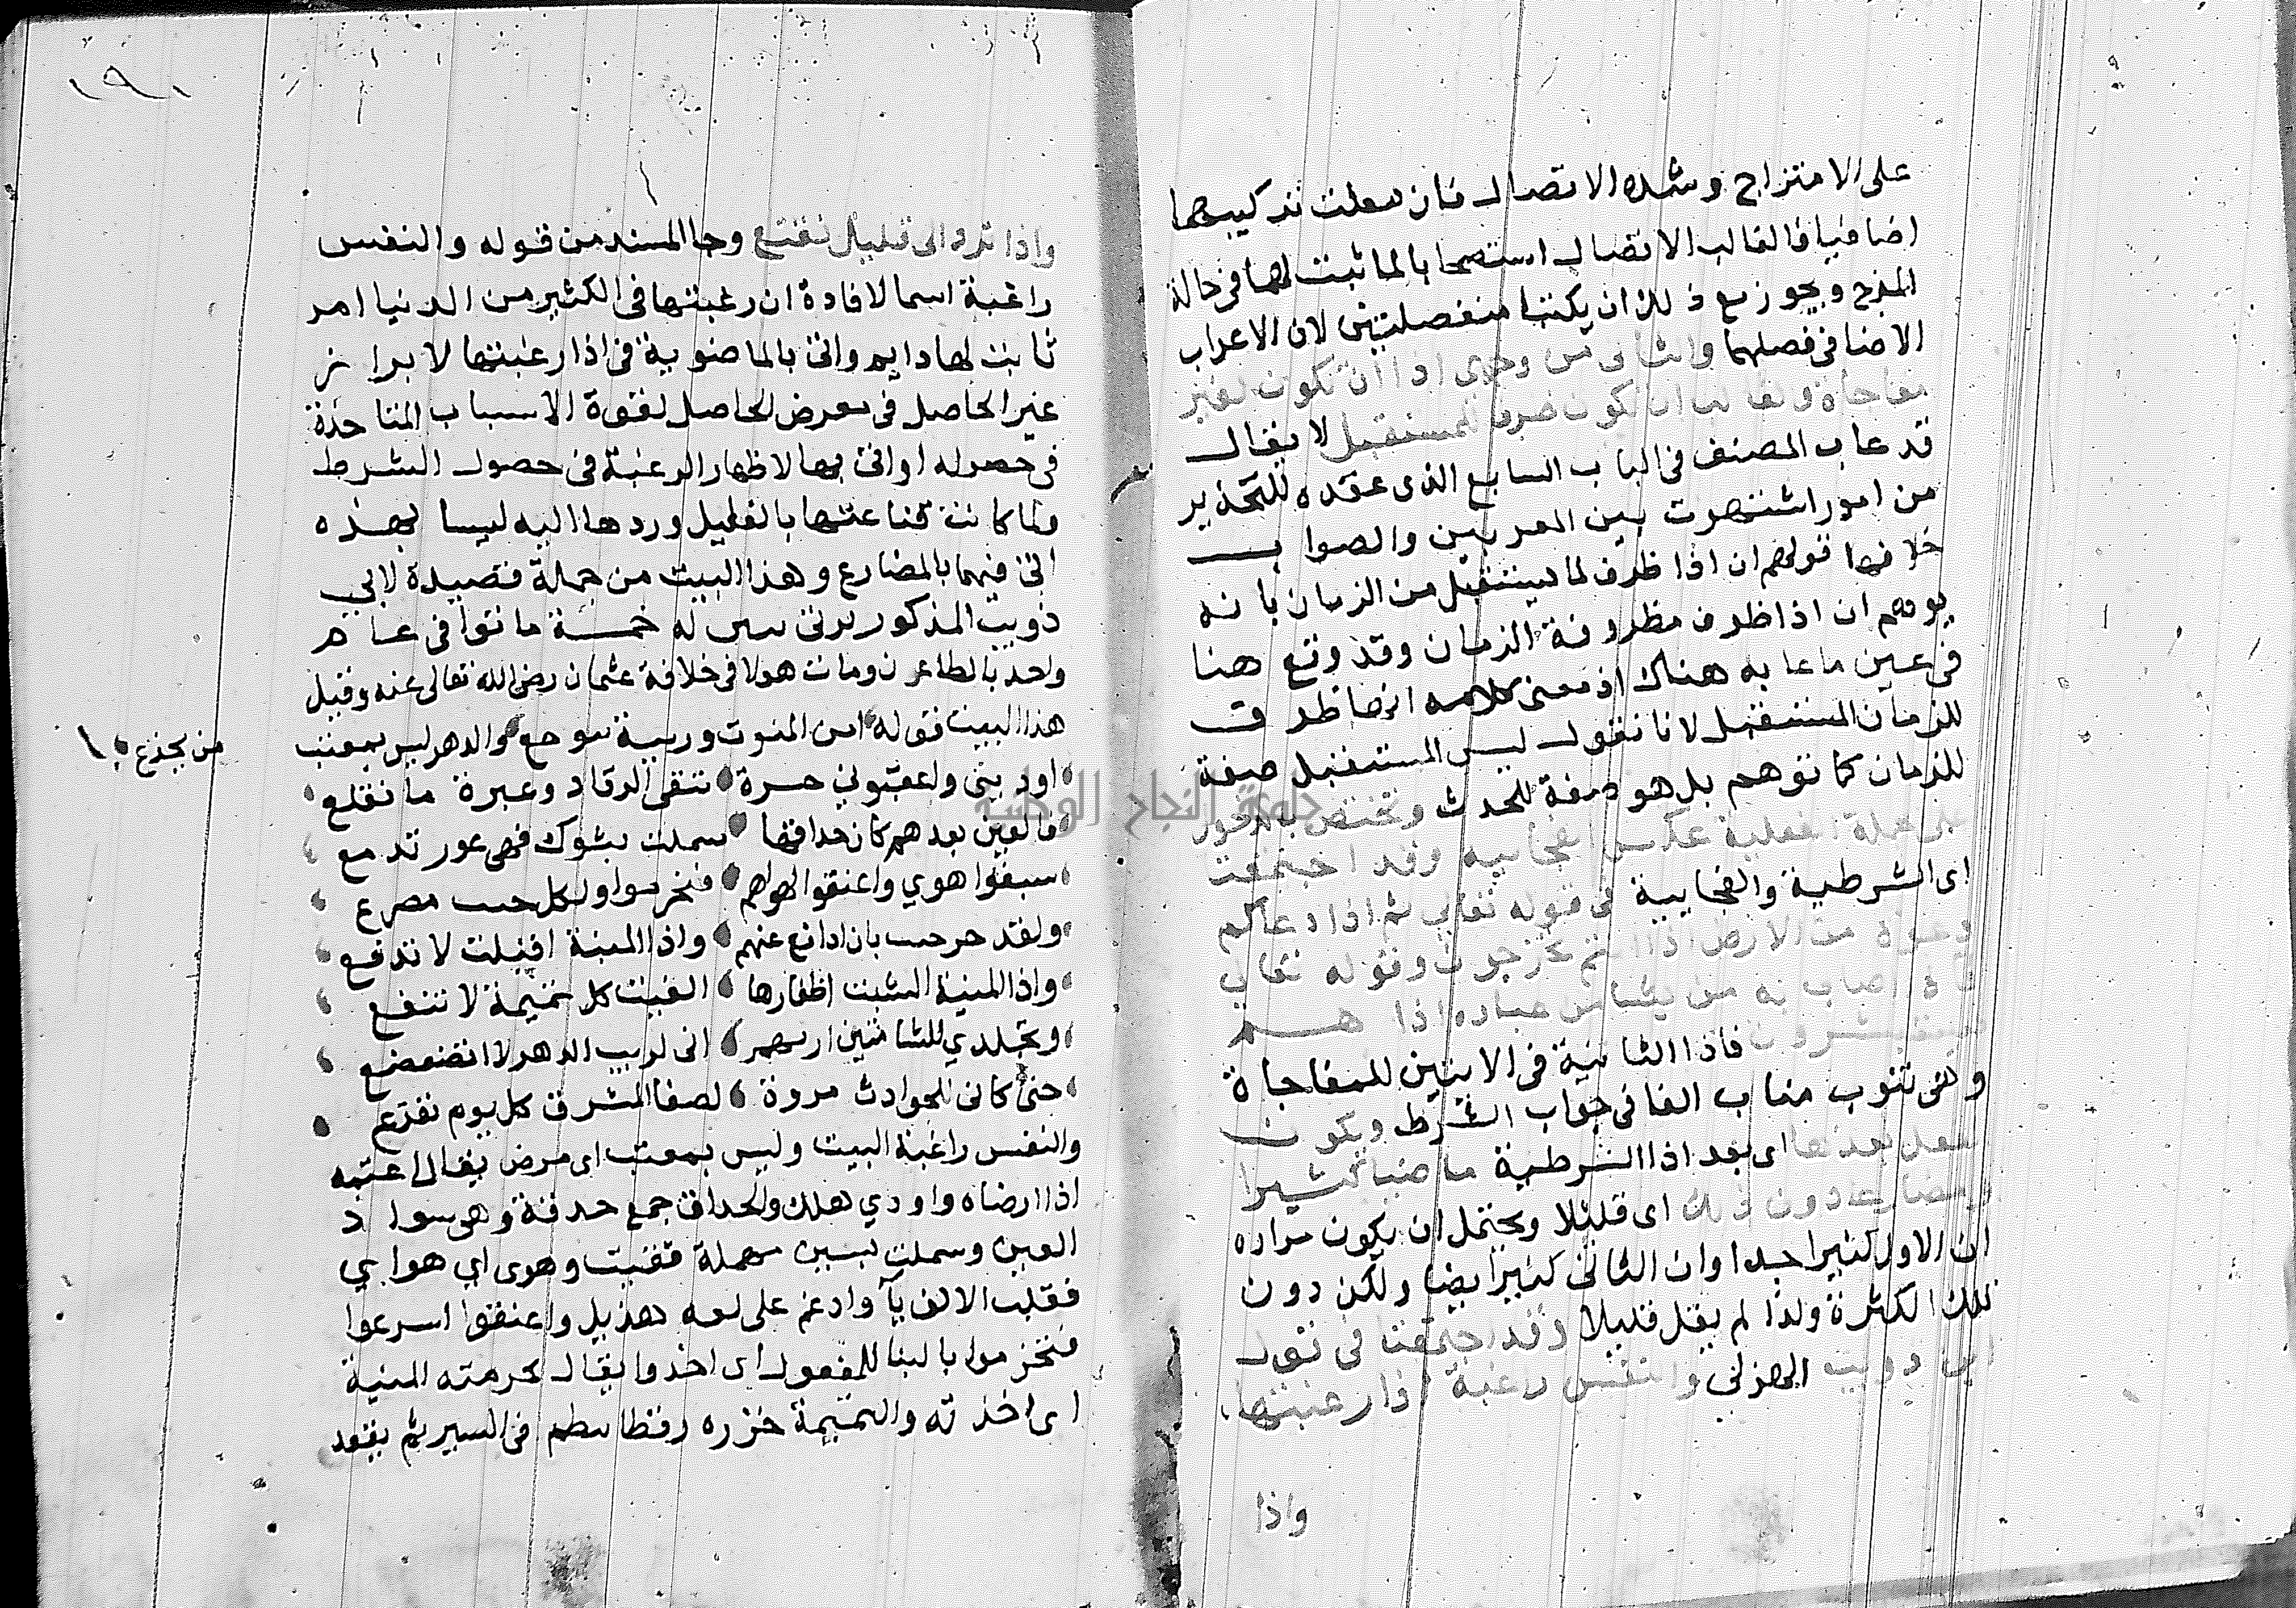 على الامتزاج وشده الاتصال فان جعلت تركيبهما
اضافيا فالغالب الاتصال استصحابا لما ثبت لهما في حالة
المزج ويجوز مع ذلك ان يكتبا منفصلتين لان الاعراب
الاضافي فصلهما والثاني من وجهي اذا ان تكون لغير
مفاجاة والغالب ان تكون ظرفا للمستقبل لا يقال
قد عاب المصنف في الباب السابع الذي عقده للتحذير
من امور اشتهرت بين المعربين والصواب
خلافها قولهم ان اذا ظرف لما يستقبل من الزمان بانه
يوهم ان اذا ظرف مظروفة الزمان وقد وقع هنا
في عين ما عابه هناك اذ معنى كلامه انها ظرف
للزمان المستقبل لانا نقول ليس المستقبل صفة
للزمان كما توهم بل هو صفة للحدث وتختص بالدخول
على جملة الفعلية عكس الفجاييه وقد اجتمعت
اى الشرطية والفجايية في قوله تعالى ثم اذا دعاكم
دعوة من الارض اذا انتم تخرجون وقوله تعالى
فاذا اصاب به من يشا من عباده اذا هم
يستبشرون فاذا الثانية في الايتين للمفاجاة
وهي تنوب مناب الفا في جواب الشرط ويكون
الفعل بعدها اى بعد اذا الشرطية ماضيا كثيرا
ومضارعا دون ذلك اى قليلا ويحتمل ان يكون مراده
ان الاول كثير جدا وان الثاني كثير ايضا ولكن دون
تلك الكثرة ولذا لم يقل قليلا وقد اجتمعتا في قول
ابي دويب الهزلي والنفس راغبة اذا رغبتها
واذا
١٩١
واذا ترد الى قليل تقنع وجا المسند من قوله والنفس
راغبة اسما لافادة ان رغبتها في الكثير من الدنيا امر
ثابت لها دايم واتى بالماضوية في اذا رغبتها لابراز
غير الحاصل في معرض الحاصل لقوة الاسباب المتاخذة
في حصوله او اتى بها لاظهار الرغبة في حصول الشرط
ولما كانت قناعتها بالقليل وردها اليه ليسا بهذه
اتى فيهما بالمضارع وهذا البيت من جملة قصيدة لابي
ذويب المذكور يرثي بنين له خمسة ماتوا في عام
واحد بالطاعون ومات هو لا في خلافة عثمان رضي الله تعالى عنه وقبل
هذا البيت قوله امن المنون وريبة تتوجع والدهر ليس بمعتب
من يجزع
اودى بني واعقبوني حسرة تنقى الرقاد وعبرة ما تقلع
فالعين بعدهم كان حداقها سملت بشوك فهي عور تدمع
سبقوا هوي واعنقوا لهواهم فتخرموا ولكل جنب مصرع
ولقد حرصت بان ادافع عنهم واذا المنية اقبلت لا تدفع
واذا المنية انشبت اظفارها الفيت كل تميمة لا تنفع
وتجلدي للشامتين اريهمو اني لريب الدهر لا اتضعضع
حتى كاني للحوادث مروة لصفا المشرق كل يوم تقرع
والنفس راغبة البيت وليس بمعتب اى مرض يقال اعتبه
اذا ارضاه واودي هلك والحداق جمع حدقة وهي سواد
العين وسملت بسين مهملة فقيت وهوى اي هواي
فقلب الالف يآ وادغم على لغه هذيل واعنقوا اسرعوا
فتخرموا بالبنا للمفعول اى اخذوا يقال تخرمته المنية
اى اخذته والتميمة خزره رقطا تنظم في السير ثم يعقد
جامعة النجاح الوطنية